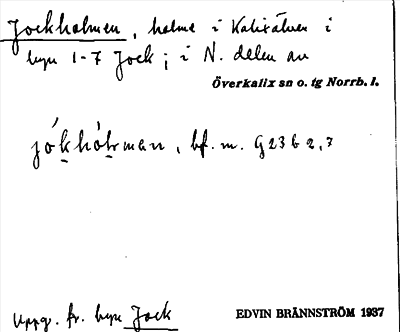 Jockholmen, holme i Kalixälven i
byn 1-7 Jock; i N. delen av
Överkalix sn o. tg Norrb. l.
jó̱khó̱lman, bf. m. G23b 2,3
Uppg. fr. byn Jock
EDVIN BRÄNNSTRÖM 1937